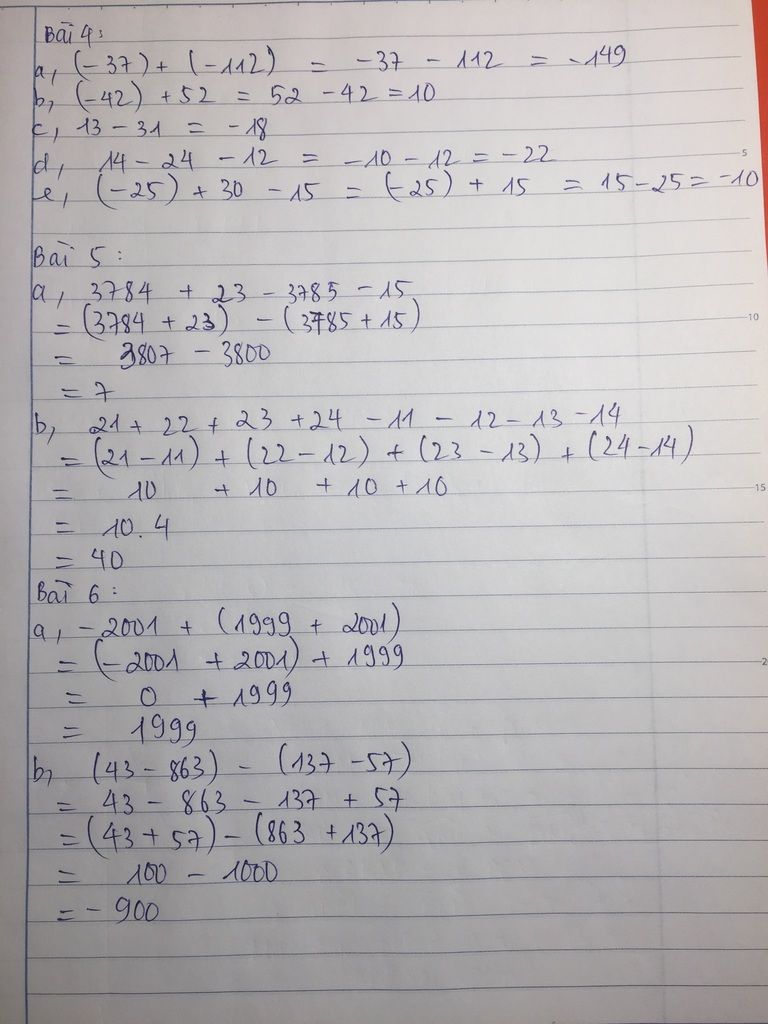 Bài 4:
a, (-37) + (-112) = -37 - 112 = -149
b, (-42) + 52 = 52 - 42 = 10
c, 13 - 31 = -18
d, 14 - 24 - 12 = -10 - 12 = -22
e, (-25) + 30 - 15 = (-25) + 15 = 15 - 25 = -10
5
Bài 5:
a, 3784 + 23 - 3785 - 15
= (3784 + 23) - (3785 + 15)
10
= 3807 - 3800
= 7
b, 21 + 22 + 23 + 24 - 11 - 12 - 13 - 14
= (21 - 11) + (22 - 12) + (23 - 13) + (24 - 14)
= 10 + 10 + 10 + 10
15
= 10.4
= 40
Bài 6:
a, -2001 + (1999 + 2001)
= (-2001 + 2001) + 1999
2
= 0 + 1999
= 1999
b, (43 - 863) - (137 - 57)
= 43 - 863 - 137 + 57
= (43 + 57) - (863 + 137)
= 100 - 1000
= -900